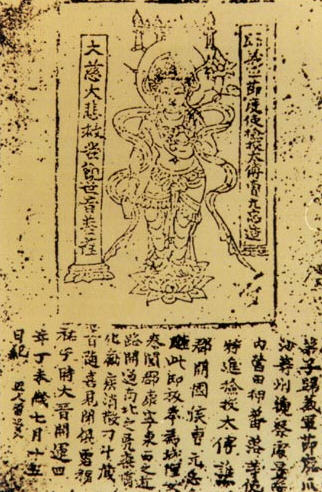 歸義軍節度使檢校太傅曹元忠造
大慈大悲救苦觀世音菩薩
弟子歸義軍節度瓜
沙等州觀察處置管
內營田押蕃落等使
特進檢校太傅譙
郡開國侯曹元忠
雕此印板奉為城隍安
泰闔郡康寧東西之道
路開通南北之凶渠順
化勵疾消散刁斗藏
音隨喜見聞俱霑福
祐于時大晉開運四
年丁未歲七月十五
日紀 匠人